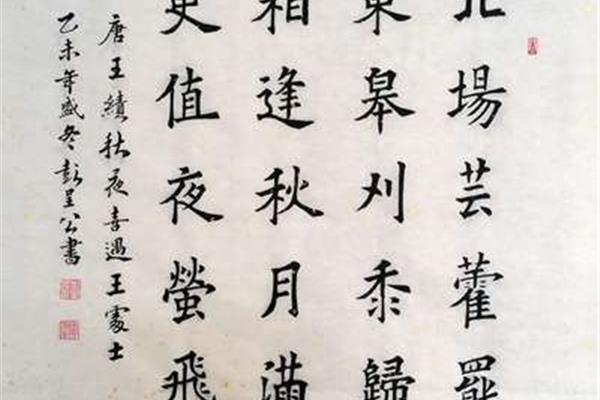 北場芸藿罷
東皋刈黍歸
相逢秋月滿
更值夜螢飛
唐王績秋夜喜遇王處士
乙未年盛冬彭呈公書